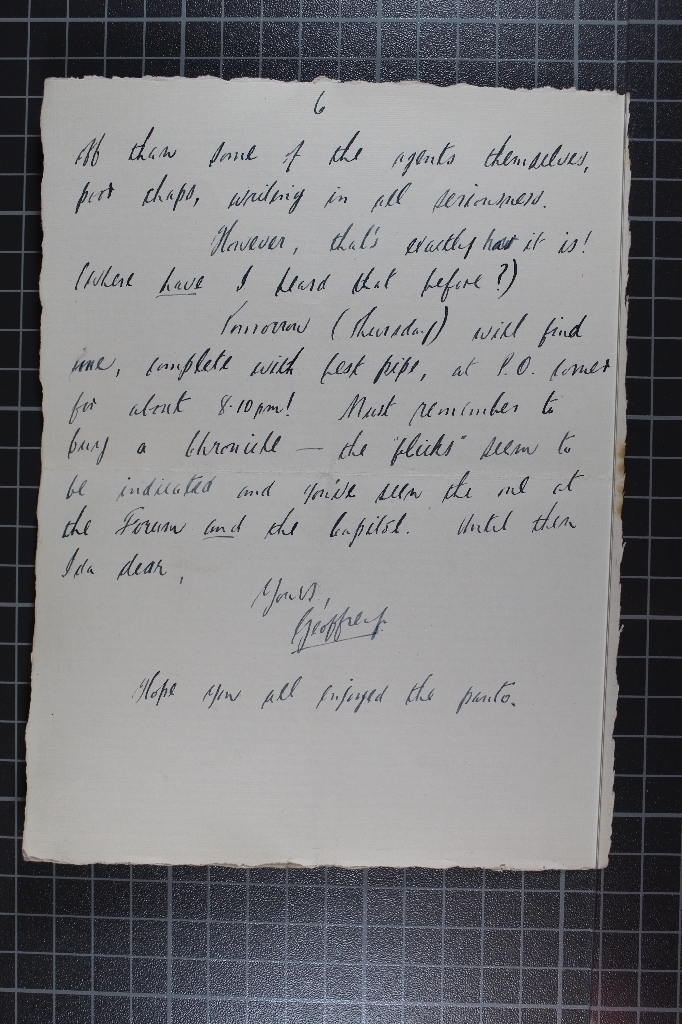 6
off than some of the agents themselves,
poor chaps, writing in all seriousness.
However, that's exactly how it is!
(Where have I heard that before?)
Tomorrow (Thursday) will find
me, complete with best pipe, at P.O. corner
for about 8.10pm! Must remember to
buy a Chronicle — the "flicks" seem to
be indicated and you've seen the one at
the Forum and the Capitol. Until then
Ida dear,
Yours,
Geoffrey.
Hope you all enjoyed the panto.